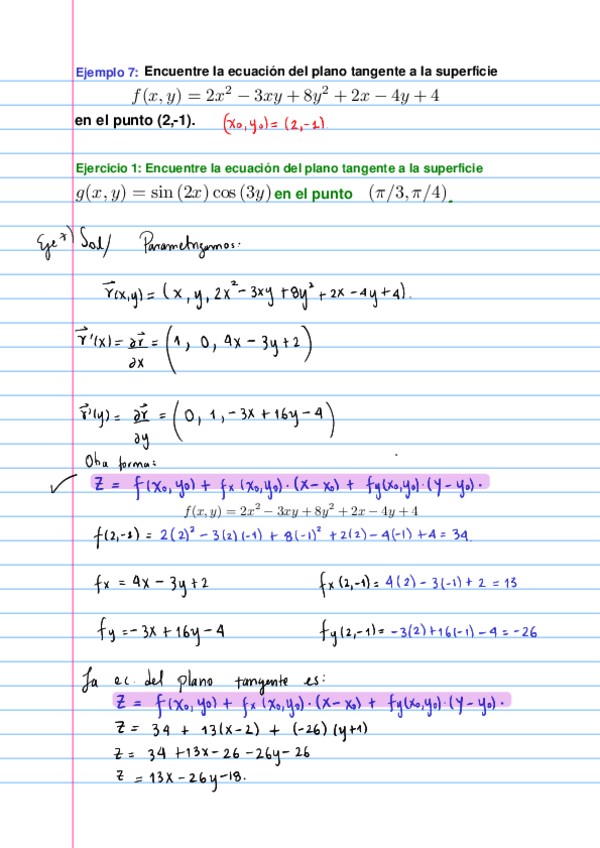 Ejemplo 7: Encuentre la ecuación del plano tangente a la superficie
f(x, y) = 2x² − 3xy + 8y² + 2x − 4y + 4
en el punto (2,-1). (x₀, y₀) = (2,-1).
Ejercicio 1: Encuentre la ecuación del plano tangente a la superficie
g(x, y) = sin (2x) cos (3y) en el punto (π/3, π/4).
Eje 7) Sol/ Parametrizamos:
r⃗(x,y) = (x, y, 2x² − 3xy + 8y² + 2x − 4y + 4).
r⃗'(x) = ∂r⃗/∂x = (1, 0, 4x − 3y + 2)
r⃗'(y) = ∂r⃗/∂y = (0, 1, −3x + 16y − 4)
Otra forma:
✓ z = f(x₀, y₀) + fx(x₀,y₀)·(x−x₀) + fy(x₀,y₀)·(y−y₀).
f(x, y) = 2x² − 3xy + 8y² + 2x − 4y + 4
f(2,-1) = 2(2)² − 3(2)(-1) + 8(-1)² + 2(2) − 4(-1) + 4 = 34
fx = 4x − 3y + 2 fx(2,-1) = 4(2) − 3(-1) + 2 = 13
fy = −3x + 16y − 4 fy(2,-1) = −3(2) + 16(-1) − 4 = −26
La ec. del plano tangente es:
z = f(x₀, y₀) + fx(x₀,y₀)·(x−x₀) + fy(x₀,y₀)·(y−y₀).
z = 34 + 13(x−2) + (−26)(y+1)
z = 34 + 13x − 26 − 26y − 26
z = 13x − 26y − 18.